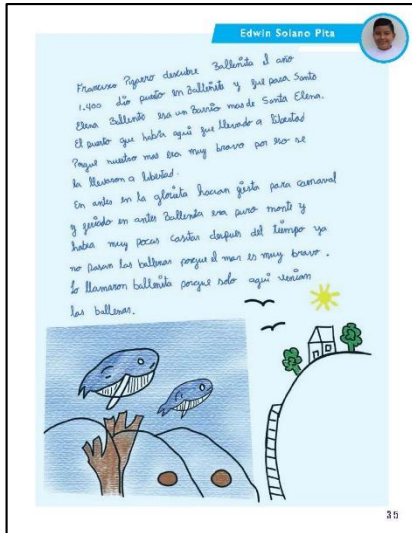 Edwin Solano Pita
Francisco Pizarro descubre Ballenita el año
1.400 dio puerto en Ballenita y fue para Santa
Elena Ballenita era un Barrio mas de Santa Elena.
El puerto que había aquí fue llevado a libertad
Porque nuestro mar era muy bravo por eso se
la llevaron a libertad.
En antes en la glorieta hacian fiesta para carnaval
y feriado en antes Ballenita era puro monte y
habia muy pocas casitas después del tiempo ya
no pasan las ballenas porque el mar es muy bravo.
Lo llamaron ballenita porque solo aquí venian
las ballenas.
35